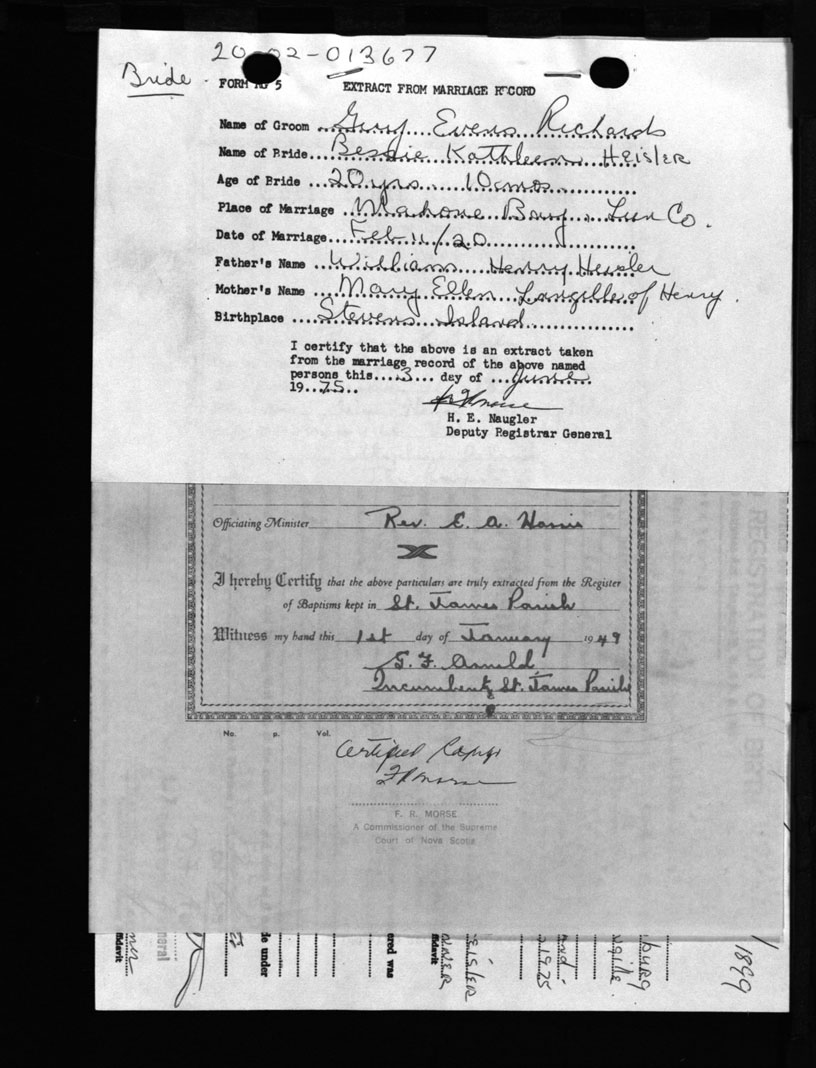 20-02-013677
Bride
FORM NO 5 EXTRACT FROM MARRIAGE RECORD
Name of Groom ... Evens Richards
Name of Bride... Bessie Kathleen HEISLER
Age of Bride ... 20 yrs 10 mos
Place of Marriage ... Mahone Bay, Lun Co.
Date of Marriage... Feb 11/20
Father's Name ... William Henry Heisler
Mother's Name ... Mary Ellen Langille of Henry
Birthplace ... Stevens Island
I certify that the above is an extract taken
from the marriage record of the above named
persons this...3... day of ...June...
19..75..
H. E. Naugler
Deputy Registrar General
Officiating Minister Rev. E. A. Harris
I hereby Certify that the above particulars are truly extracted from the Register
of Baptisms kept in St. James Parish
Witness my hand this 1st day of January 1949
G. F. Arnold
Incumbent, St. James Parish
No. p. Vol.
Certified Copy
F R Morse
F. R. MORSE
A Commissioner of the Supreme
Court of Nova Scotia
REGISTRATION OF BIRT
1899
1975
EISLER
ered was
de under
eral
ffidavit
ffidavit